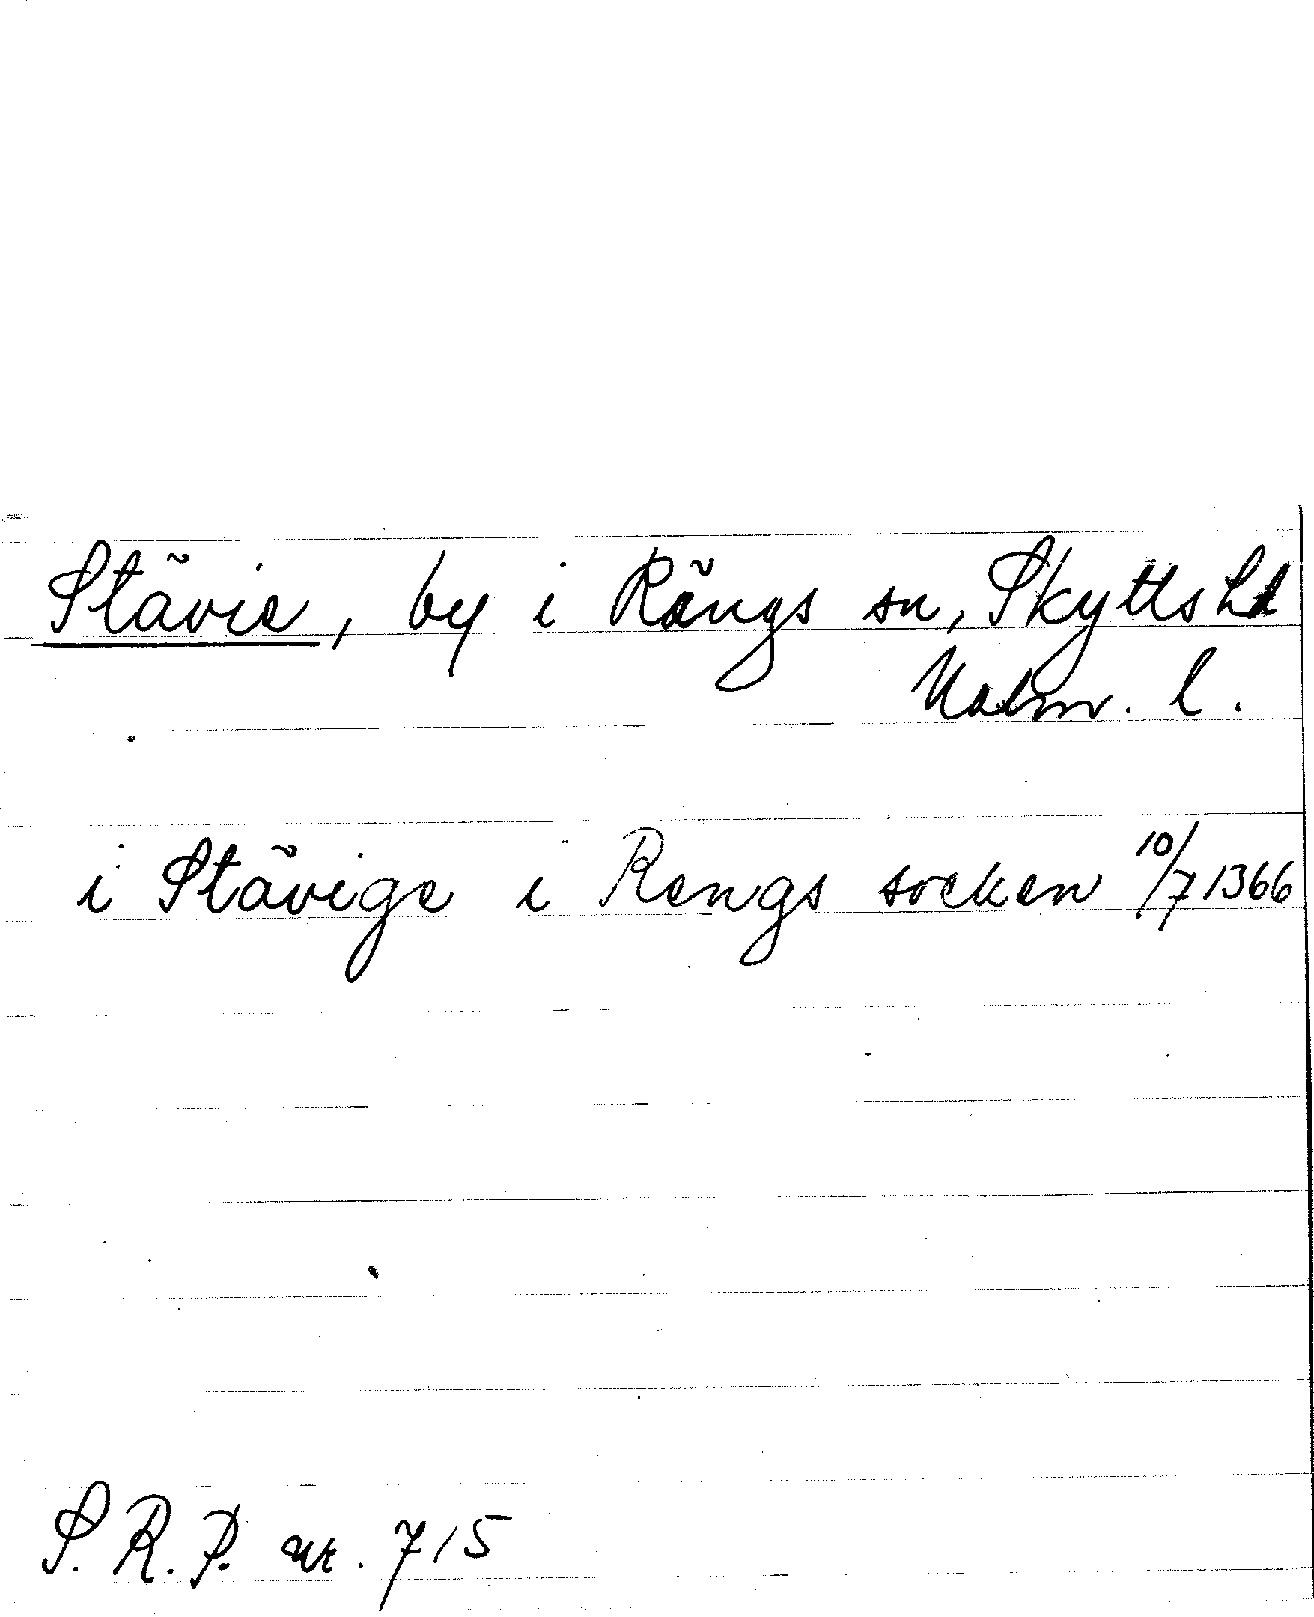 Stävie, by i Rängs sn, Skytts hd
Malm. l.
i Stävige i Rengs socken 10/7 1366
S.R.P. nr. 715